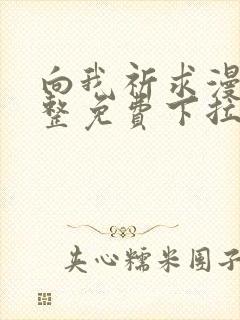 向我祈求漫
整免費下拉
夹心糯米团子